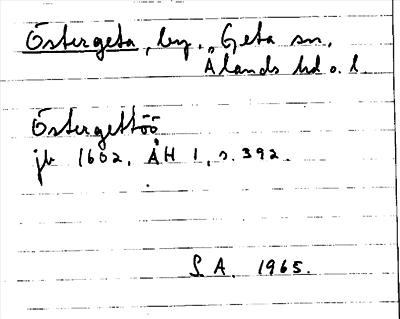 Östergeta, by, Geta sn,
Ålands hd o. l.
Östergettöö
jb 1602, ÅH 1, s. 392.
S A. 1965.